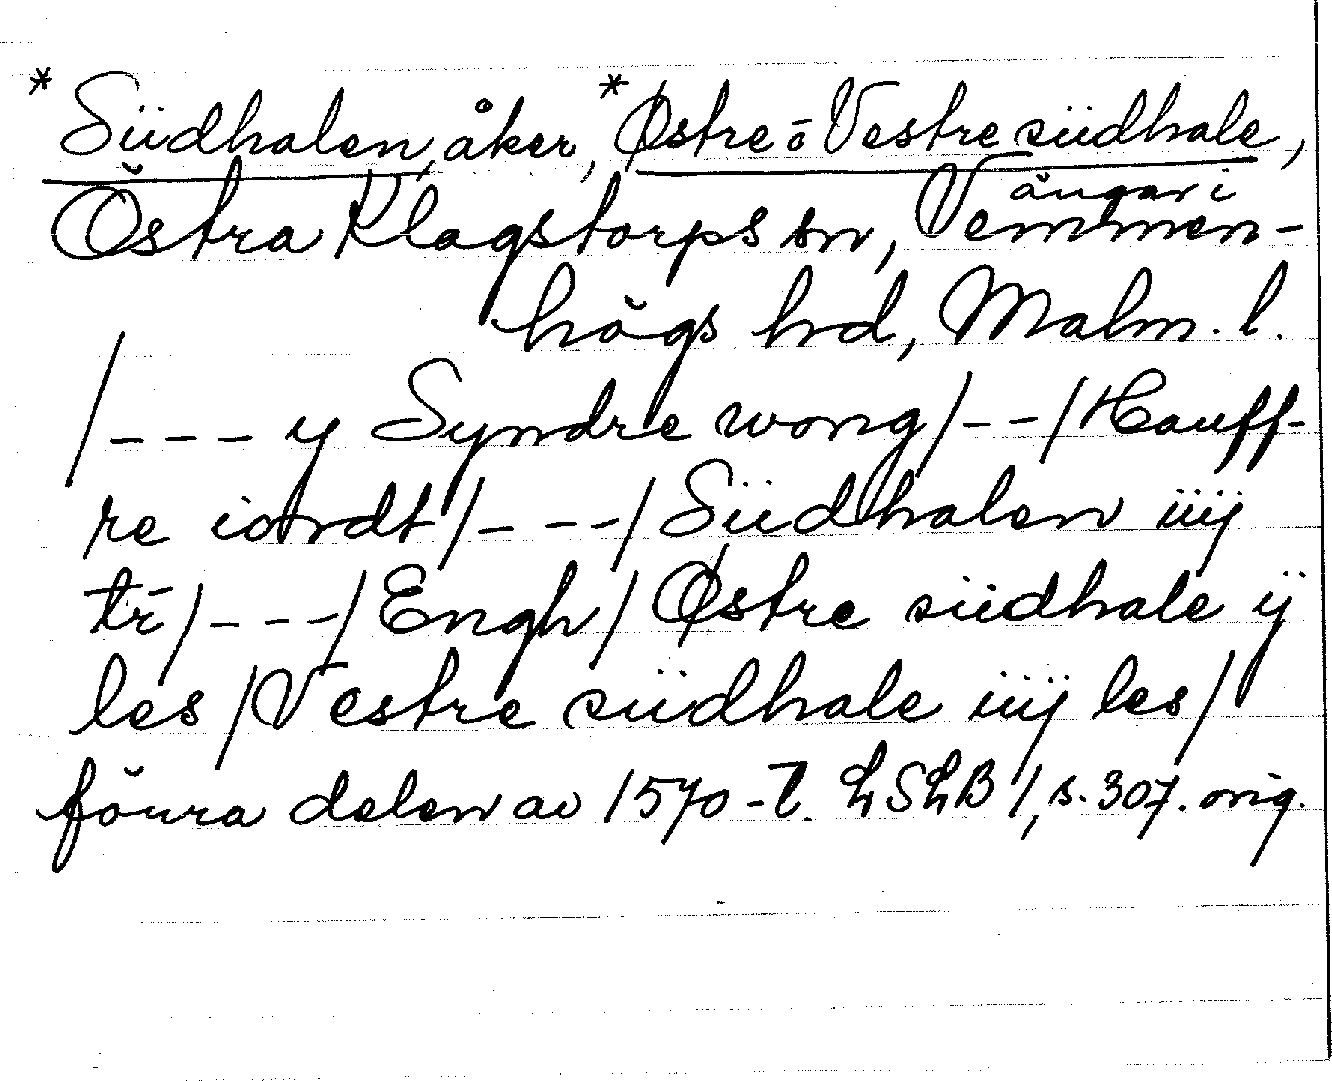 *Süդhalen, åker, *Østre o Vestre südhale,
ängar i
Östra Klagstorps sn, Vemmen-
högs hd, Malm. l.
/--- y Syndre wong/--/Hauff-
re iordt/---/Südhalen iiij
tr/---/Engh/Østre südhale ij
les/Vestre südhale iiij les/
förra delen av 1570-t. LSLB/, s. 307. orig.